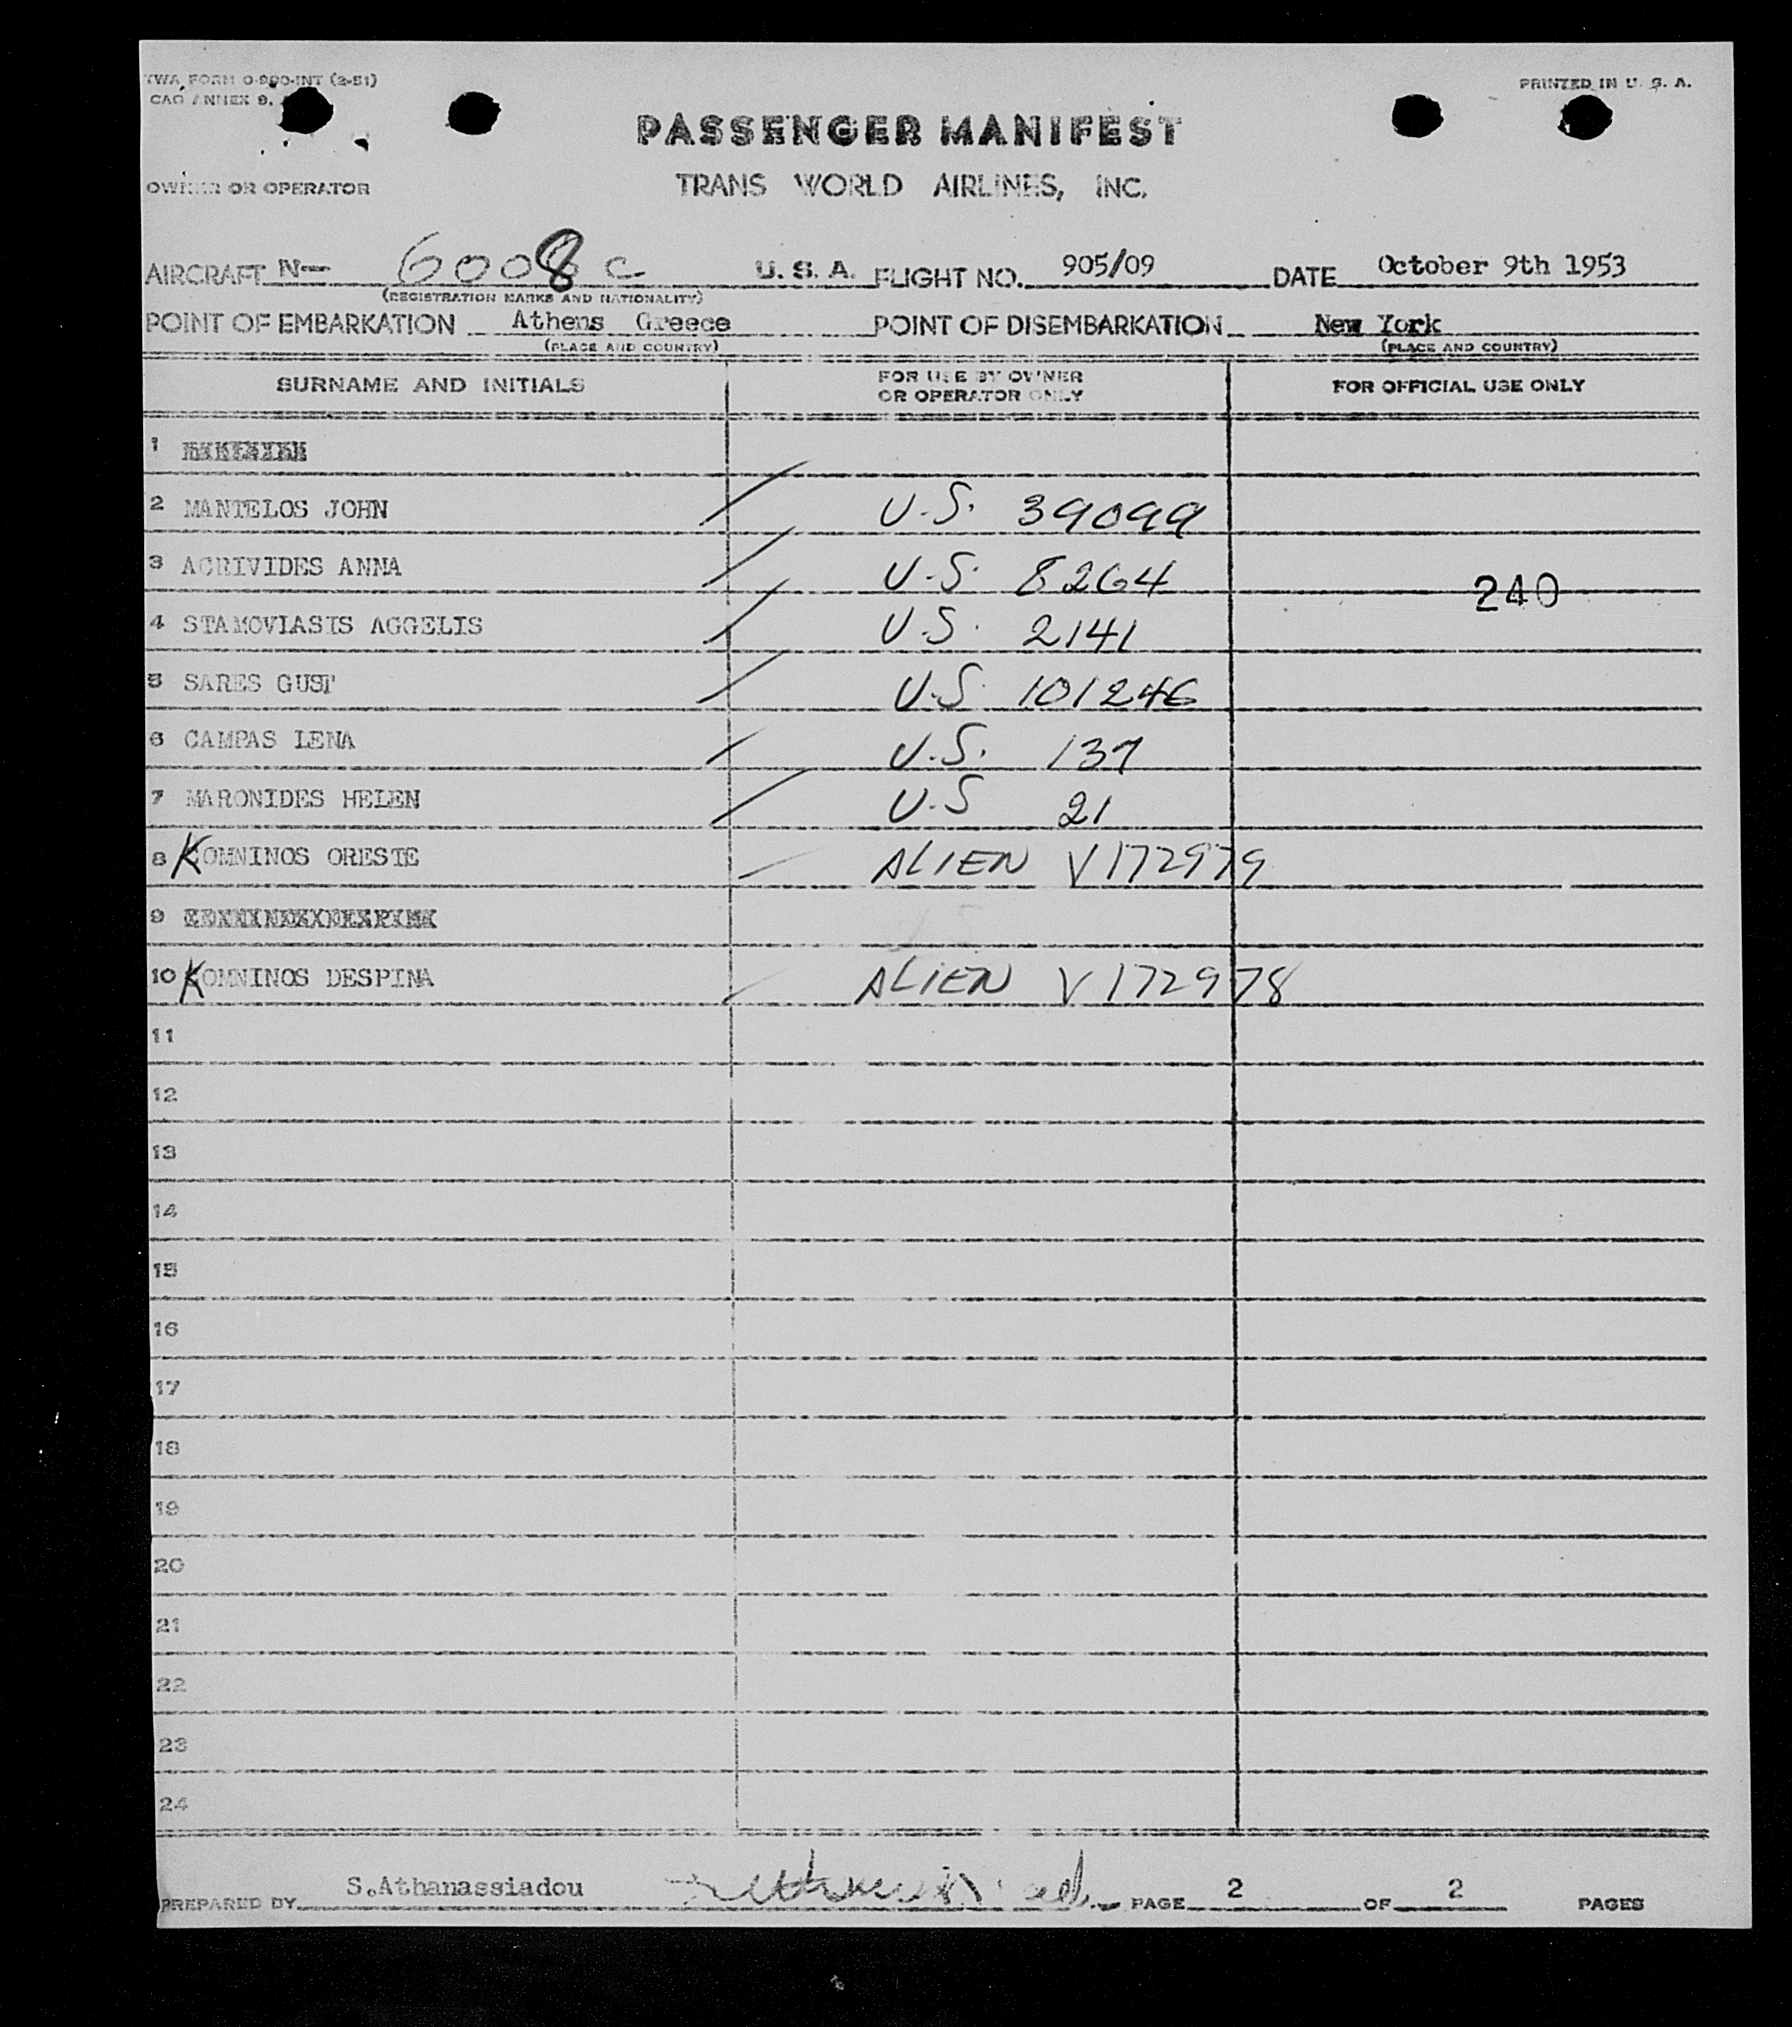 TWA FORM O-990-INT (2-51)
CAO ANNEX 9,
PRINTED IN U. S. A.
PASSENGER MANIFEST
OWNER OR OPERATOR
TRANS WORLD AIRLINES, INC.
AIRCRAFT N- 6008C U. S. A. FLIGHT NO. 905/09 DATE October 9th 1953
(REGISTRATION MARKS AND NATIONALITY)
POINT OF EMBARKATION Athens Greece POINT OF DISEMBARKATION New York
(PLACE AND COUNTRY) (PLACE AND COUNTRY)
SURNAME AND INITIALS FOR USE BY OWNER OR OPERATOR ONLY FOR OFFICIAL USE ONLY
1
2 MANTELOS JOHN U.S. 39099
3 ACRIVIDES ANNA U.S. 8264
240
4 STAMOVIASIS AGGELIS U.S. 2141
5 SARES GUST U.S. 101246
6 CAMPAS LENA U.S. 137
7 MARONIDES HELEN U.S 21
8 KOMNINOS ORESTE ALIEN V172979
9
10 KOMNINOS DESPINA ALIEN V172978
11
12
13
14
15
16
17
18
19
20
21
22
23
24
PREPARED BY S.Athanassiadou PAGE 2 OF 2 PAGES